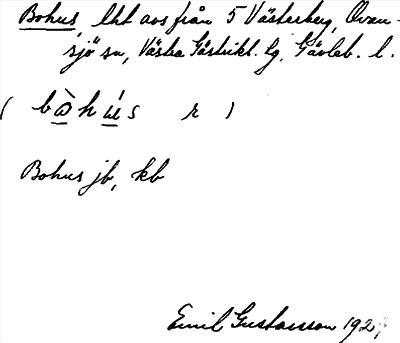 Bohus, lht avs från 5 Västerberg, Ovan-
sjö sn, Västra Gästrikl. tg, Gävleb. l.
( bὼhu̇s r )
Bohus jb, kb
Emil Gustavsson 192